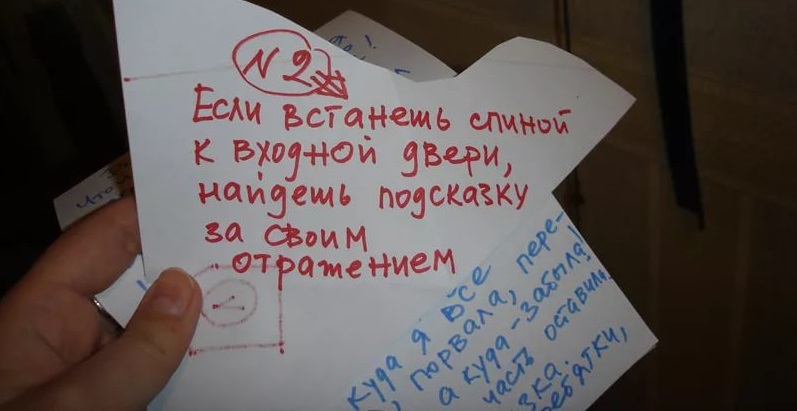 N 2
Если встанешь спиной
к входной двери,
найдешь подсказку
за своим
отражением
куда я все
порвала, пере-
а куда-забыла!
часть оставила
зка.
ребятки,
что